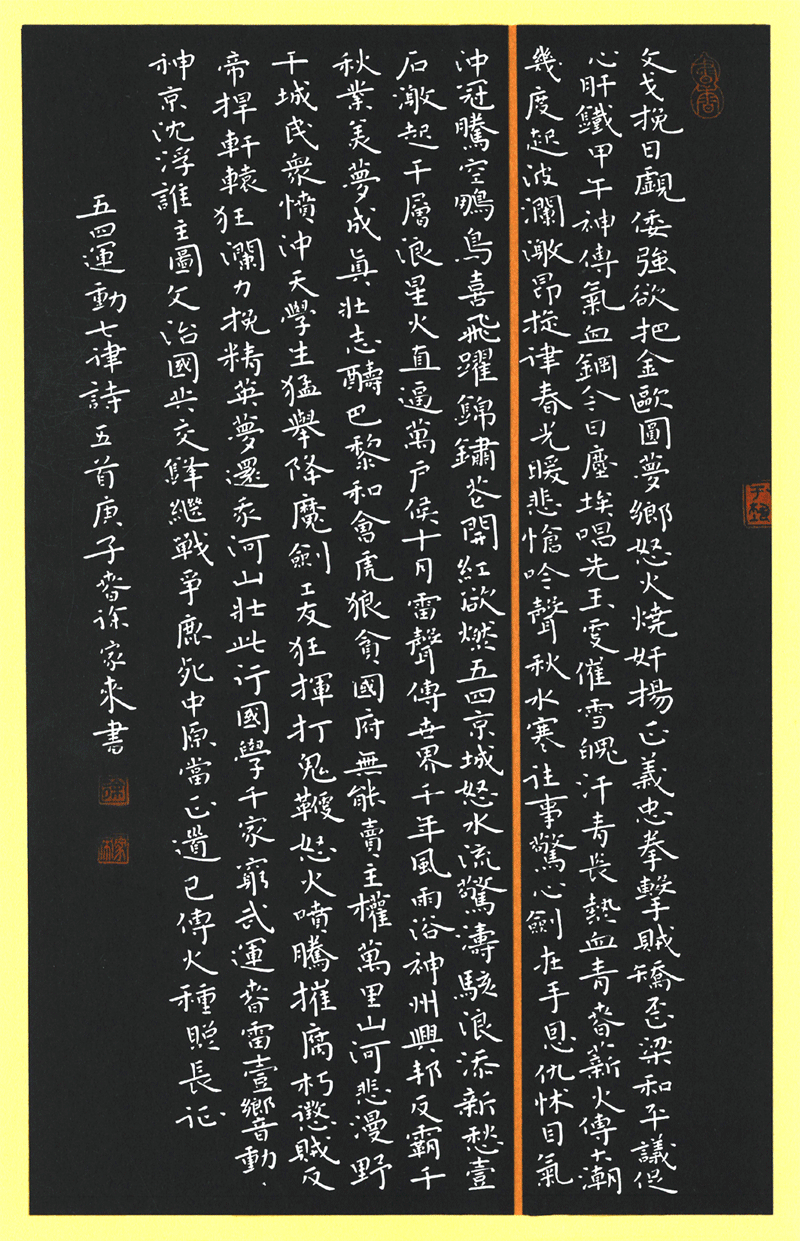 文戈挽日覷倭強欲把金歐圓夢鄉怒火燒奸揚正義忠拳擊賊矯歪梁和平議促
心肝鐵甲午神傳氣血鋼今日塵埃唱先玉雯催雪魄汗青長熱血青春薪火傳大潮
幾度起波瀾激昂旋律春光暖悲愴吟聲秋水寒往事驚心劍在手恩仇怵目氣
沖冠騰空鵬鳥喜飛躍錦鏽花開紅欲燃五四京城怒水流驚濤駭浪添新愁壹
石激起千層浪星火直逼萬戶侯十月雷聲傳世界千年風雨浴神州興邦反霸千
秋業美夢成真壯志酬巴黎和會虎狼貪國府無能賣主權萬里山河悲漫野
千城民衆憤沖天學生猛舉降魔劍工友狂揮打鬼鞭怒火噴騰摧腐朽懲賊反
帝捍軒轅狂瀾力挽精英夢還我河山壯此行國學千家窮武運春雷壹響音動
神京沈浮誰主圖文治國共交鋒繼戰爭鹿死中原當正道已傳火種照長征
五四運動七律詩五首庚子春徐家來書